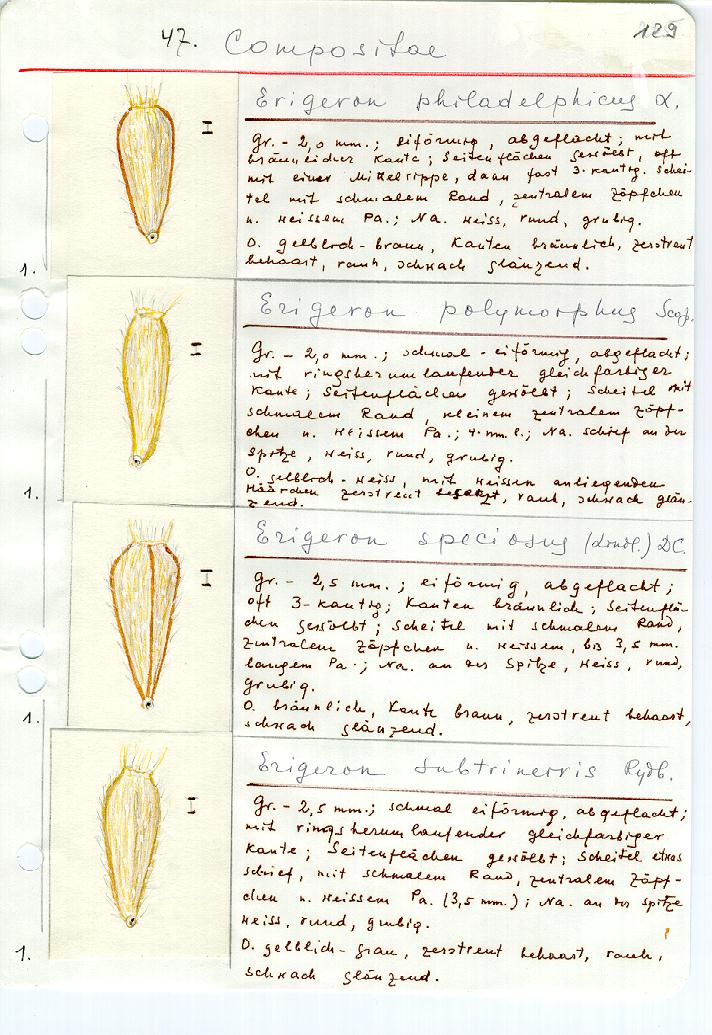 129
47. Compositae
Erigeron philadelphicus L.
Gr. - 2,0 mm.; eiförmig, abgeflacht; mit
bräunlicher Kante; Seitenflächen gewölbt, oft
mit einer Mittelrippe, dann fast 3-kantig. Schei-
tel mit schmalem Rand, zentralem Zäpfchen
u. weissem Pa.; Na. weiss, rund, grubig.
O. gelblich-braun, Kanten bräunlich, zerstreut
behaart, rauh, schwach glänzend.
1.
Erigeron polymorphus Scop.
Gr. - 2,0 mm.; schmal-eiförmig, abgeflacht;
mit ringsherumlaufender gleichfarbiger
Kante; Seitenflächen gewölbt; Scheitel mit
schmalem Rand, kleinem zentralem Zäpf-
chen u. weissem Pa.; 4 mm. l.; Na. schief an der
Spitze, weiss, rund, grubig.
O. gelblich-weiss, mit weissen anliegenden
Häärchen zerstreut besetzt, rauh, schwach glän-
zend.
1.
Erigeron speciosus (Lindl.) DC.
Gr. - 2,5 mm.; eiförmig, abgeflacht;
oft 3-kantig; Kanten bräunlich; Seitenflä-
chen gewölbt; Scheitel mit schmalem Rand,
zentralem Zäpfchen u. weissem, bis 3,5 mm.
langem Pa.; Na. an der Spitze, weiss, rund,
grubig.
O. bräunlich, Kante braun, zerstreut behaart,
schwach glänzend.
1.
Erigeron subtrinervis Rydb.
Gr. - 2,5 mm.; schmal eiförmig, abgeflacht;
mit ringsherumlaufender gleichfarbiger
Kante; Seitenflächen gewölbt; Scheitel etwas
schief, mit schmalem Rand, zentralem Zäpf-
chen u. weissem Pa. (3,5 mm.); Na. an der Spitze
weiss, rund, grubig.
O. gelblich-grau, zerstreut behaart, rauh,
schwach glänzend.
1.